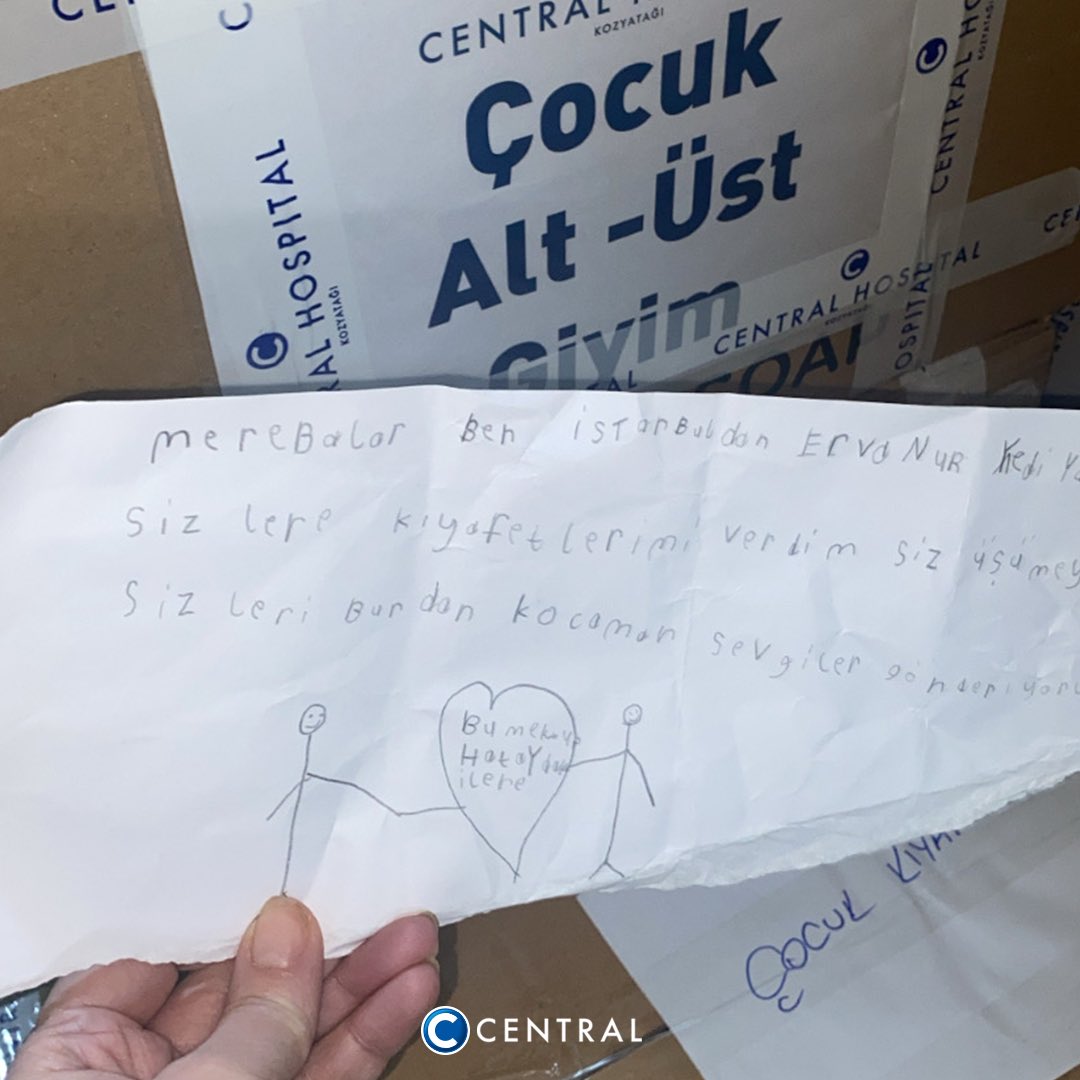 CENTRAL
KOZYATAĞI
Çocuk
Alt -Üst
Giyim
CENTRAL HOSPITAL
KOZYATAĞI
CENTRAL HOSPITAL
CENTRAL
mereBalar Ben isTanBuldan ErvaNUR
Siz lere kıyafetlerimi verdim siz
Siz leri Burdan kocaman sevgiler gönderiyoru
Bu
HataY
ilere
ÇOCUK
CENTRAL